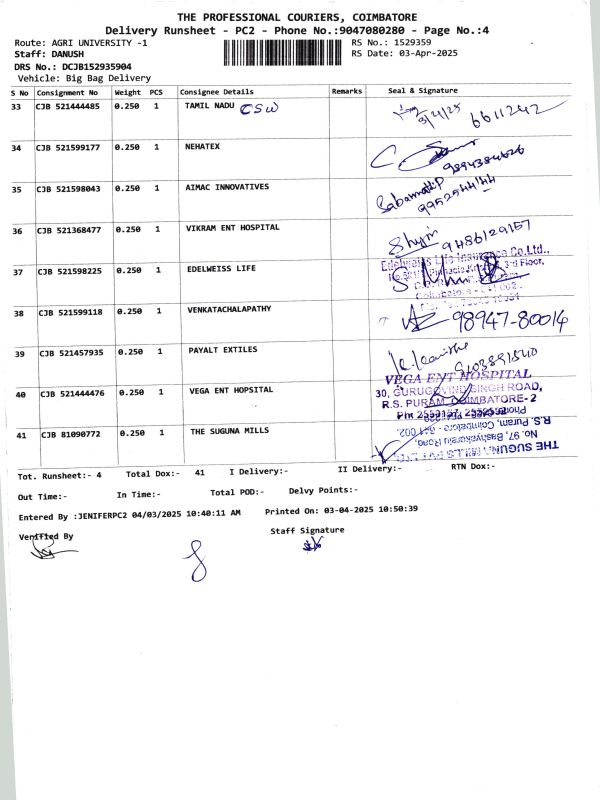 THE PROFESSIONAL COURIERS, COIMBATORE
Delivery Runsheet - PC2 - Phone No.:9047080280 - Page No.:4
Route: AGRI UNIVERSITY -1 RS No.: 1529359
Staff: DANUSH RS Date: 03-Apr-2025
DRS No.: DCJB152935904
Vehicle: Big Bag Delivery
S No Consignment No Weight PCS Consignee Details Remarks Seal & Signature
33 CJB 521444485 0.250 1 TAMIL NADU CSW 3/4/25 6611242
34 CJB 521599177 0.250 1 NEHATEX 9894384626
35 CJB 521598043 0.250 1 AIMAC INNOVATIVES Sabarinath P
9952544144
36 CJB 521368477 0.250 1 VIKRAM ENT HOSPITAL 9486129157
37 CJB 521598225 0.250 1 EDELWEISS LIFE Edelweiss Life Insurance Co.Ltd.,
3rd Floor,
38 CJB 521599118 0.250 1 VENKATACHALAPATHY 98947-80014
39 CJB 521457935 0.250 1 PAYALT EXTILES
40 CJB 521444476 0.250 1 VEGA ENT HOPSITAL VEGA ENT HOSPITAL
30, GURUGOVIND SINGH ROAD,
R.S. PURAM, COIMBATORE- 2
41 CJB 81090772 0.250 1 THE SUGUNA MILLS THE SUGUNA MILLS
No. 97, Bashyakaralu Road,
R.S. Puram, Coimbatore - 641 002.
Tot. Runsheet:- 4 Total Dox:- 41 I Delivery:- II Delivery:- RTN Dox:-
Out Time:- In Time:- Total POD:- Delvy Points:-
Entered By :JENIFERPC2 04/03/2025 10:40:11 AM Printed On: 03-04-2025 10:50:39
Verified By Staff Signature